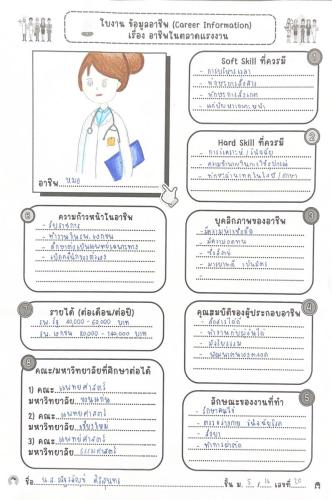 ใบงาน ข้อมูลอาชีพ (Career Information)
เรื่อง อาชีพในตลาดแรงงาน
อาชีพ หมอ
1
Soft Skill ที่ควรมี
- การบริหารเวลา
- ทักษะการสื่อสาร
- ทักษะการสังเกต
- แก้ปัญหาเฉพาะหน้า
2
Hard Skill ที่ควรมี
- การวิเคราะห์ / วินิจฉัย
- ความชำนาญในการใช้อุปกรณ์
- ทักษะด้านเทคโนโลยี / ภาษา
3
บุคลิกภาพของอาชีพ
- มีความน่าเชื่อถือ
- มีความอดทน
- ซื่อสัตย์
- มารยาทดี เป็นมิตร
4
คุณสมบัติของผู้ประกอบอาชีพ
- สื่อสารได้ดี
- ทำงานกับผู้อื่นได้
- มีจริยธรรม
- พัฒนาตนเองตลอด
5
ลักษณะของงานที่ทำ
- รักษาคนไข้
- ตรวจร่างกาย วินิจฉัยโรค
- สั่งยา
- ทำการผ่าตัด
6
คณะ/มหาวิทยาลัยที่ศึกษาต่อได้
1) คณะ แพทยศาสตร์
มหาวิทยาลัย ขอนแก่น
2) คณะ แพทยศาสตร์
มหาวิทยาลัย เชียงใหม่
3) คณะ แพทยศาสตร์
มหาวิทยาลัย ธรรมศาสตร์
7
รายได้ (ต่อเดือน/ต่อปี)
รพ. รัฐ 40,000 - 60,000 บาท
รพ. เอกชน 80,000 - 140,000 บาท
8
ความก้าวหน้าในอาชีพ
- รับราชการ
- ทำงานใน รพ. เอกชน
- ศึกษาต่อเป็นแพทย์เฉพาะทาง
- เปิดคลินิกของตนเอง
ชื่อ น.ส. ชั้น ม. 5 / 16 เลขที่ 20